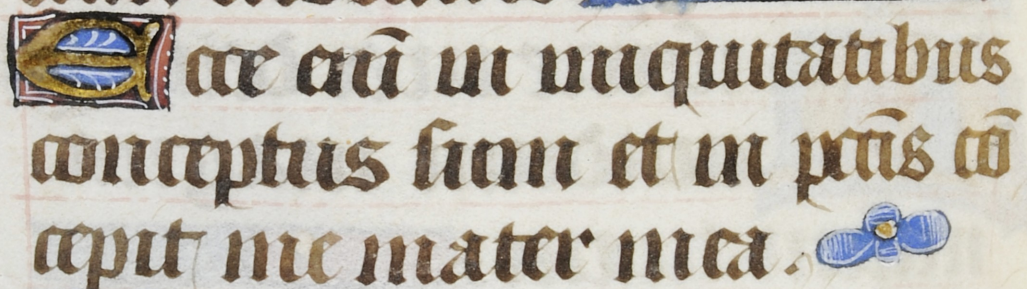 Ecce eni̅ in iniquitatibus
conceptus sum et in pctı̅s co̅
cepit me mater mea.